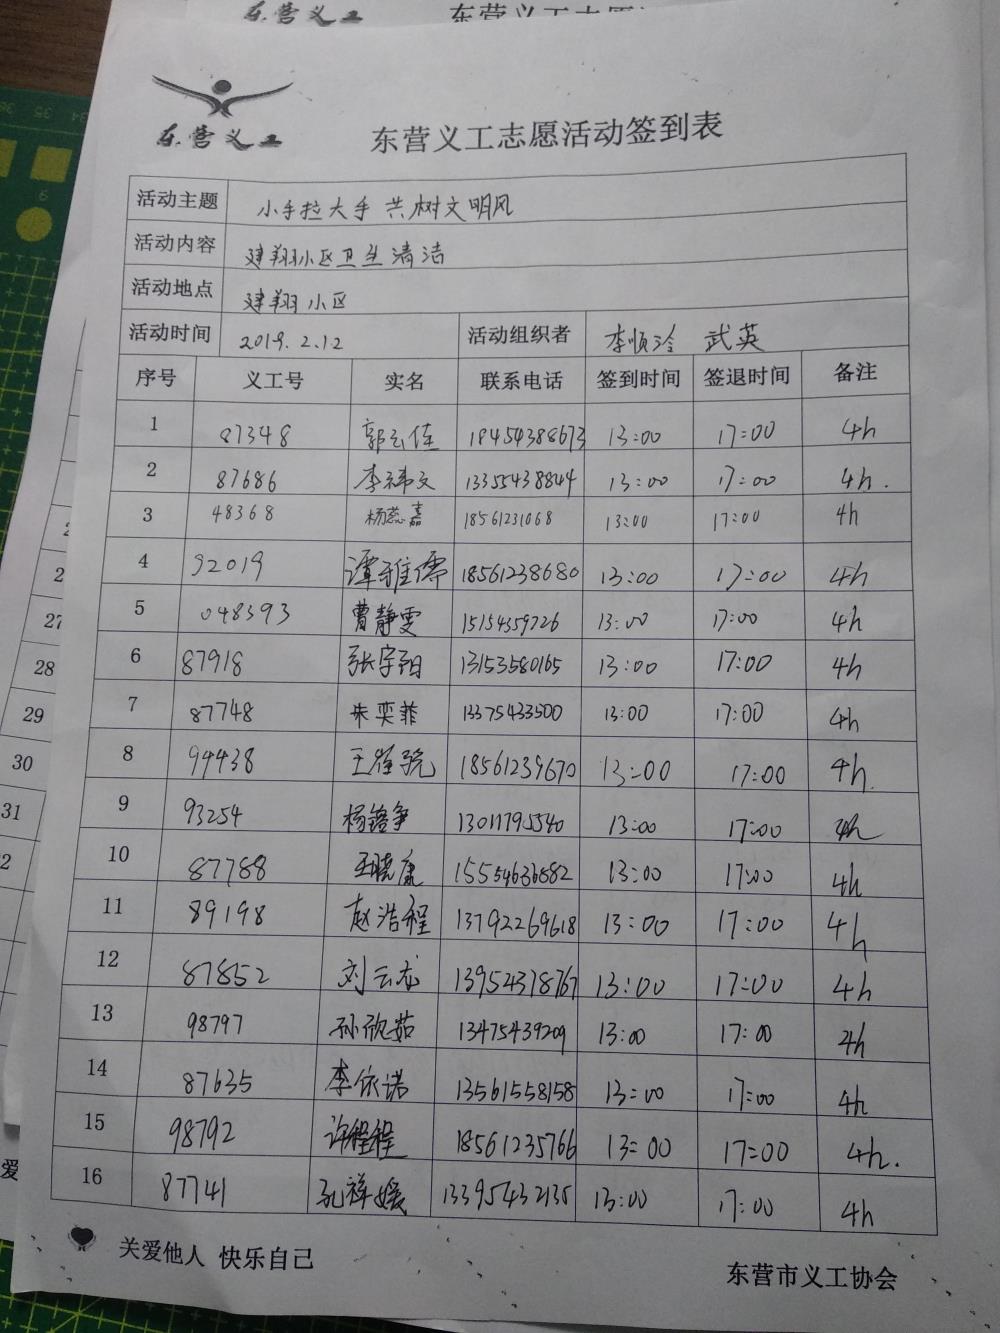 东营义工
东营义工
东营义工志愿活动签到表
活动主题 小手拉大手 共树文明风
活动内容 建翔小区卫生清洁
活动地点 建翔小区
活动时间 2019.2.12 活动组织者 李顺玲 武英
序号 义工号 实名 联系电话 签到时间 签退时间 备注
1 87348 郭云佳 18454388673 13:00 17:00 4h
2 87686 李祎文 13355438844 13:00 17:00 4h.
3 48368 杨蕊嘉 18561231068 13:00 17:00 4h
4 92019 谭雅儒 18561238680 13:00 17:00 4h
5 048393 曹静雯 15154359726 13:00 17:00 4h
6 87918 张宇阳 13153580165 13:00 17:00 4h
7 87748 朱奕菲 13375433500 13:00 17:00 4h
8 99438 18561239670 13:00 17:00 4h
9 93254 13011795540 13:00 17:00 4h
10 87788 王晓康 15554636682 13:00 17:00 4h
11 89198 赵浩程 13792269618 13:00 17:00 4h
12 87852 刘云龙 13954378767 13:00 17:00 4h
13 98797 孙欣茹 13475439209 13:00 17:00 4h
14 87635 李依诺 13561558158 13:00 17:00 4h
15 98792 许程程 18561235766 13:00 17:00 4h.
16 87741 孔祥媛 13395432135 13:00 17:00 4h
关爱他人 快乐自己
东营市义工协会
27
28
29
30
31
爱